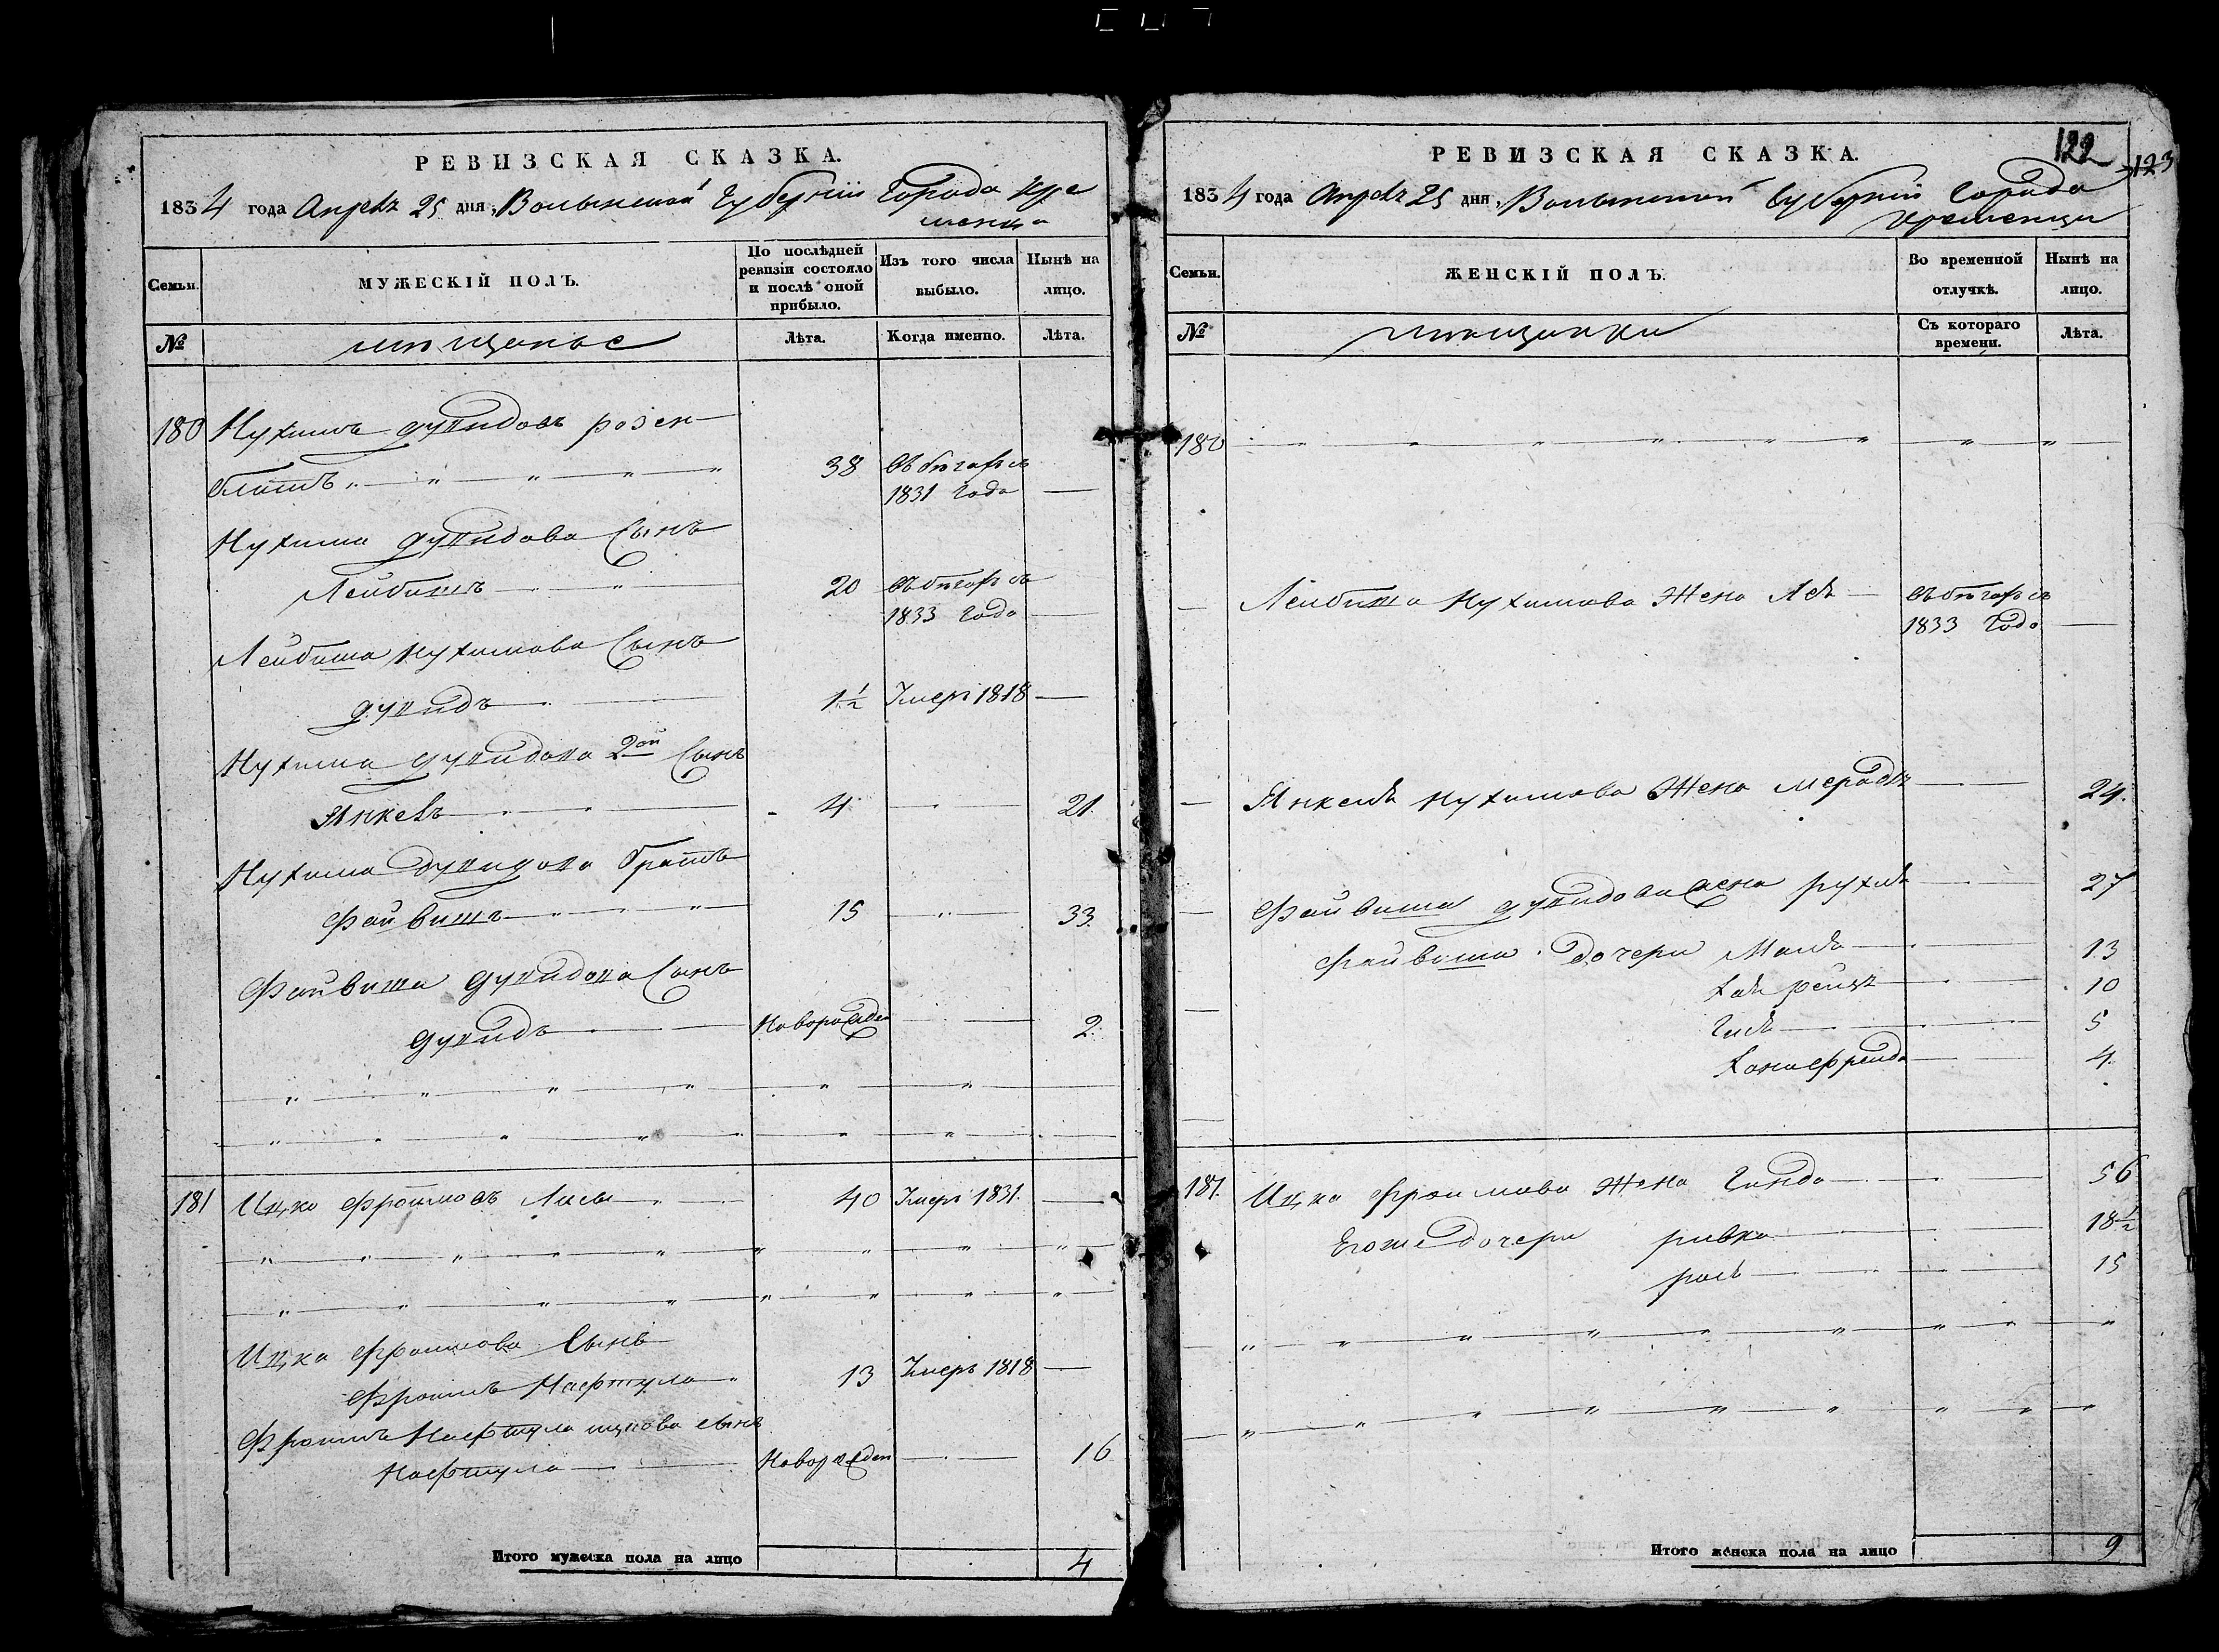 РЕВИЗСКАЯ СКАЗКА.
1834 года Апреля 25 дня, Волынской Губернии Города Кре
менца
Семьи.
МУЖЕСКІЙ ПОЛЪ.
По послѣдней ревизіи состояло и послѣ оной прибыло.
Изъ того числа выбыло.
Нынѣ на лицо.
№
мѣщанъе
Лѣта.
Когда именно.
Лѣта.
180 Нухимъ Дувидовъ Розен
блитъ 38 въ бѣгахъ съ
1831 года
Нухима Дувидова Сынъ
Лейбишъ 20 въ бѣгахъ съ
1833 года
Лейбиша Нухимова Сынъ
Дувидъ 1½ Умеръ 1818
Нухима Дувидова 2ой Сынъ
Янкель 4 21
Нухима Дувидова братъ
Файвишъ 15 33.
Файвиша Дувидова Сынъ
Дувидъ Новорожден 2
181 Ицко Фроимовъ 40 Умеръ 1831.
Ицка Фроимова Сынъ
Фроимъ Нафтула 13 Умеръ 1818
Фроимъ Нафтула Ицкова сынъ
Нафтула Новорожден 16
Итого мужеска пола на лицо 4
РЕВИЗСКАЯ СКАЗКА.
122
123
1834 года Апреля 25 дня, Волынской Губерніи Города
Кременца
Семьи.
ЖЕНСКІЙ ПОЛЪ.
Во временной отлучкѣ.
Нынѣ на лицо.
№
мѣщанки
Съ котораго времени.
Лѣта.
180
Лейбиша Нухимова Жена Лея въ бѣгахъ съ
1833 года
Янкеля Нухимова Жена 24.
Файвиша Дувидова Жена Рухля 27
Файвиша Дочери Маля 13
Хая Рейзя 10
Гиля 5
Хана Фрейда 4.
181. Ицка Фроимова Жена Гинда 56
Егоже дочери Ривка 18½
15
Итого женска пола на лицо 9